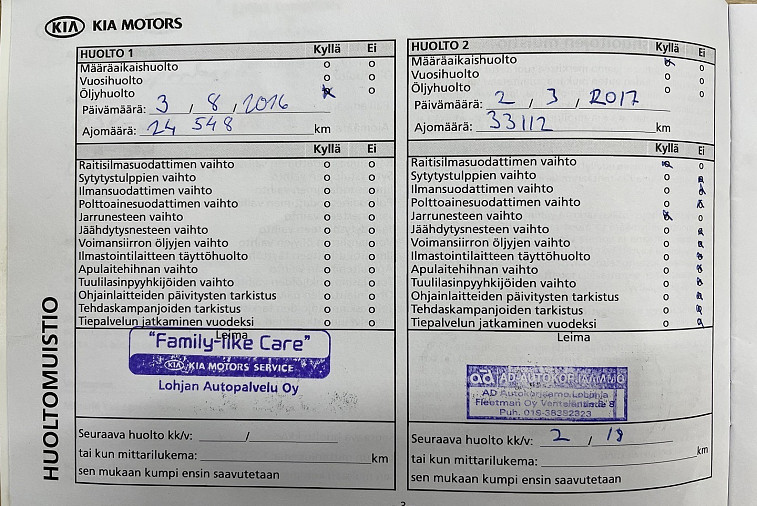 KIA KIA MOTORS
HUOLTO 1 Kyllä Ei
Määräaikaishuolto o o
Vuosihuolto o o
Öljyhuolto o o
Päivämäärä: 3 / 8 / 2016
Ajomäärä: 24 548 km
Kyllä Ei
Raitisilmasuodattimen vaihto o o
Sytytystulppien vaihto o o
Ilmansuodattimen vaihto o o
Polttoainesuodattimen vaihto o o
Jarrunesteen vaihto o o
Jäähdytysnesteen vaihto o o
Voimansiirron öljyjen vaihto o o
Ilmastointilaitteen täyttöhuolto o o
Apulaitehihnan vaihto o o
Tuulilasinpyyhkijöiden vaihto o o
Ohjainlaitteiden päivitysten tarkistus o o
Tehdaskampanjoiden tarkistus o o
Tiepalvelun jatkaminen vuodeksi o o
Leima
"Family-like Care"
KIA KIA MOTORS SERVICE
Lohjan Autopalvelu Oy
Seuraava huolto kk/v: /
tai kun mittarilukema: km
sen mukaan kumpi ensin saavutetaan
HUOLTO 2 Kyllä Ei
Määräaikaishuolto o o
Vuosihuolto o o
Öljyhuolto o o
Päivämäärä: 2 / 3 / 2017
Ajomäärä: 33112 km
Kyllä Ei
Raitisilmasuodattimen vaihto o o
Sytytystulppien vaihto o o
Ilmansuodattimen vaihto o o
Polttoainesuodattimen vaihto o o
Jarrunesteen vaihto o o
Jäähdytysnesteen vaihto o o
Voimansiirron öljyjen vaihto o o
Ilmastointilaitteen täyttöhuolto o o
Apulaitehihnan vaihto o o
Tuulilasinpyyhkijöiden vaihto o o
Ohjainlaitteiden päivitysten tarkistus o o
Tehdaskampanjoiden tarkistus o o
Tiepalvelun jatkaminen vuodeksi o o
Leima
ad AD AUTOKORJAAMO
AD Autokorjaamo Lohja
Fleetman Oy
Puh. 019-
Seuraava huolto kk/v: 2 / 19
tai kun mittarilukema: km
sen mukaan kumpi ensin saavutetaan
HUOLTOMUISTIO